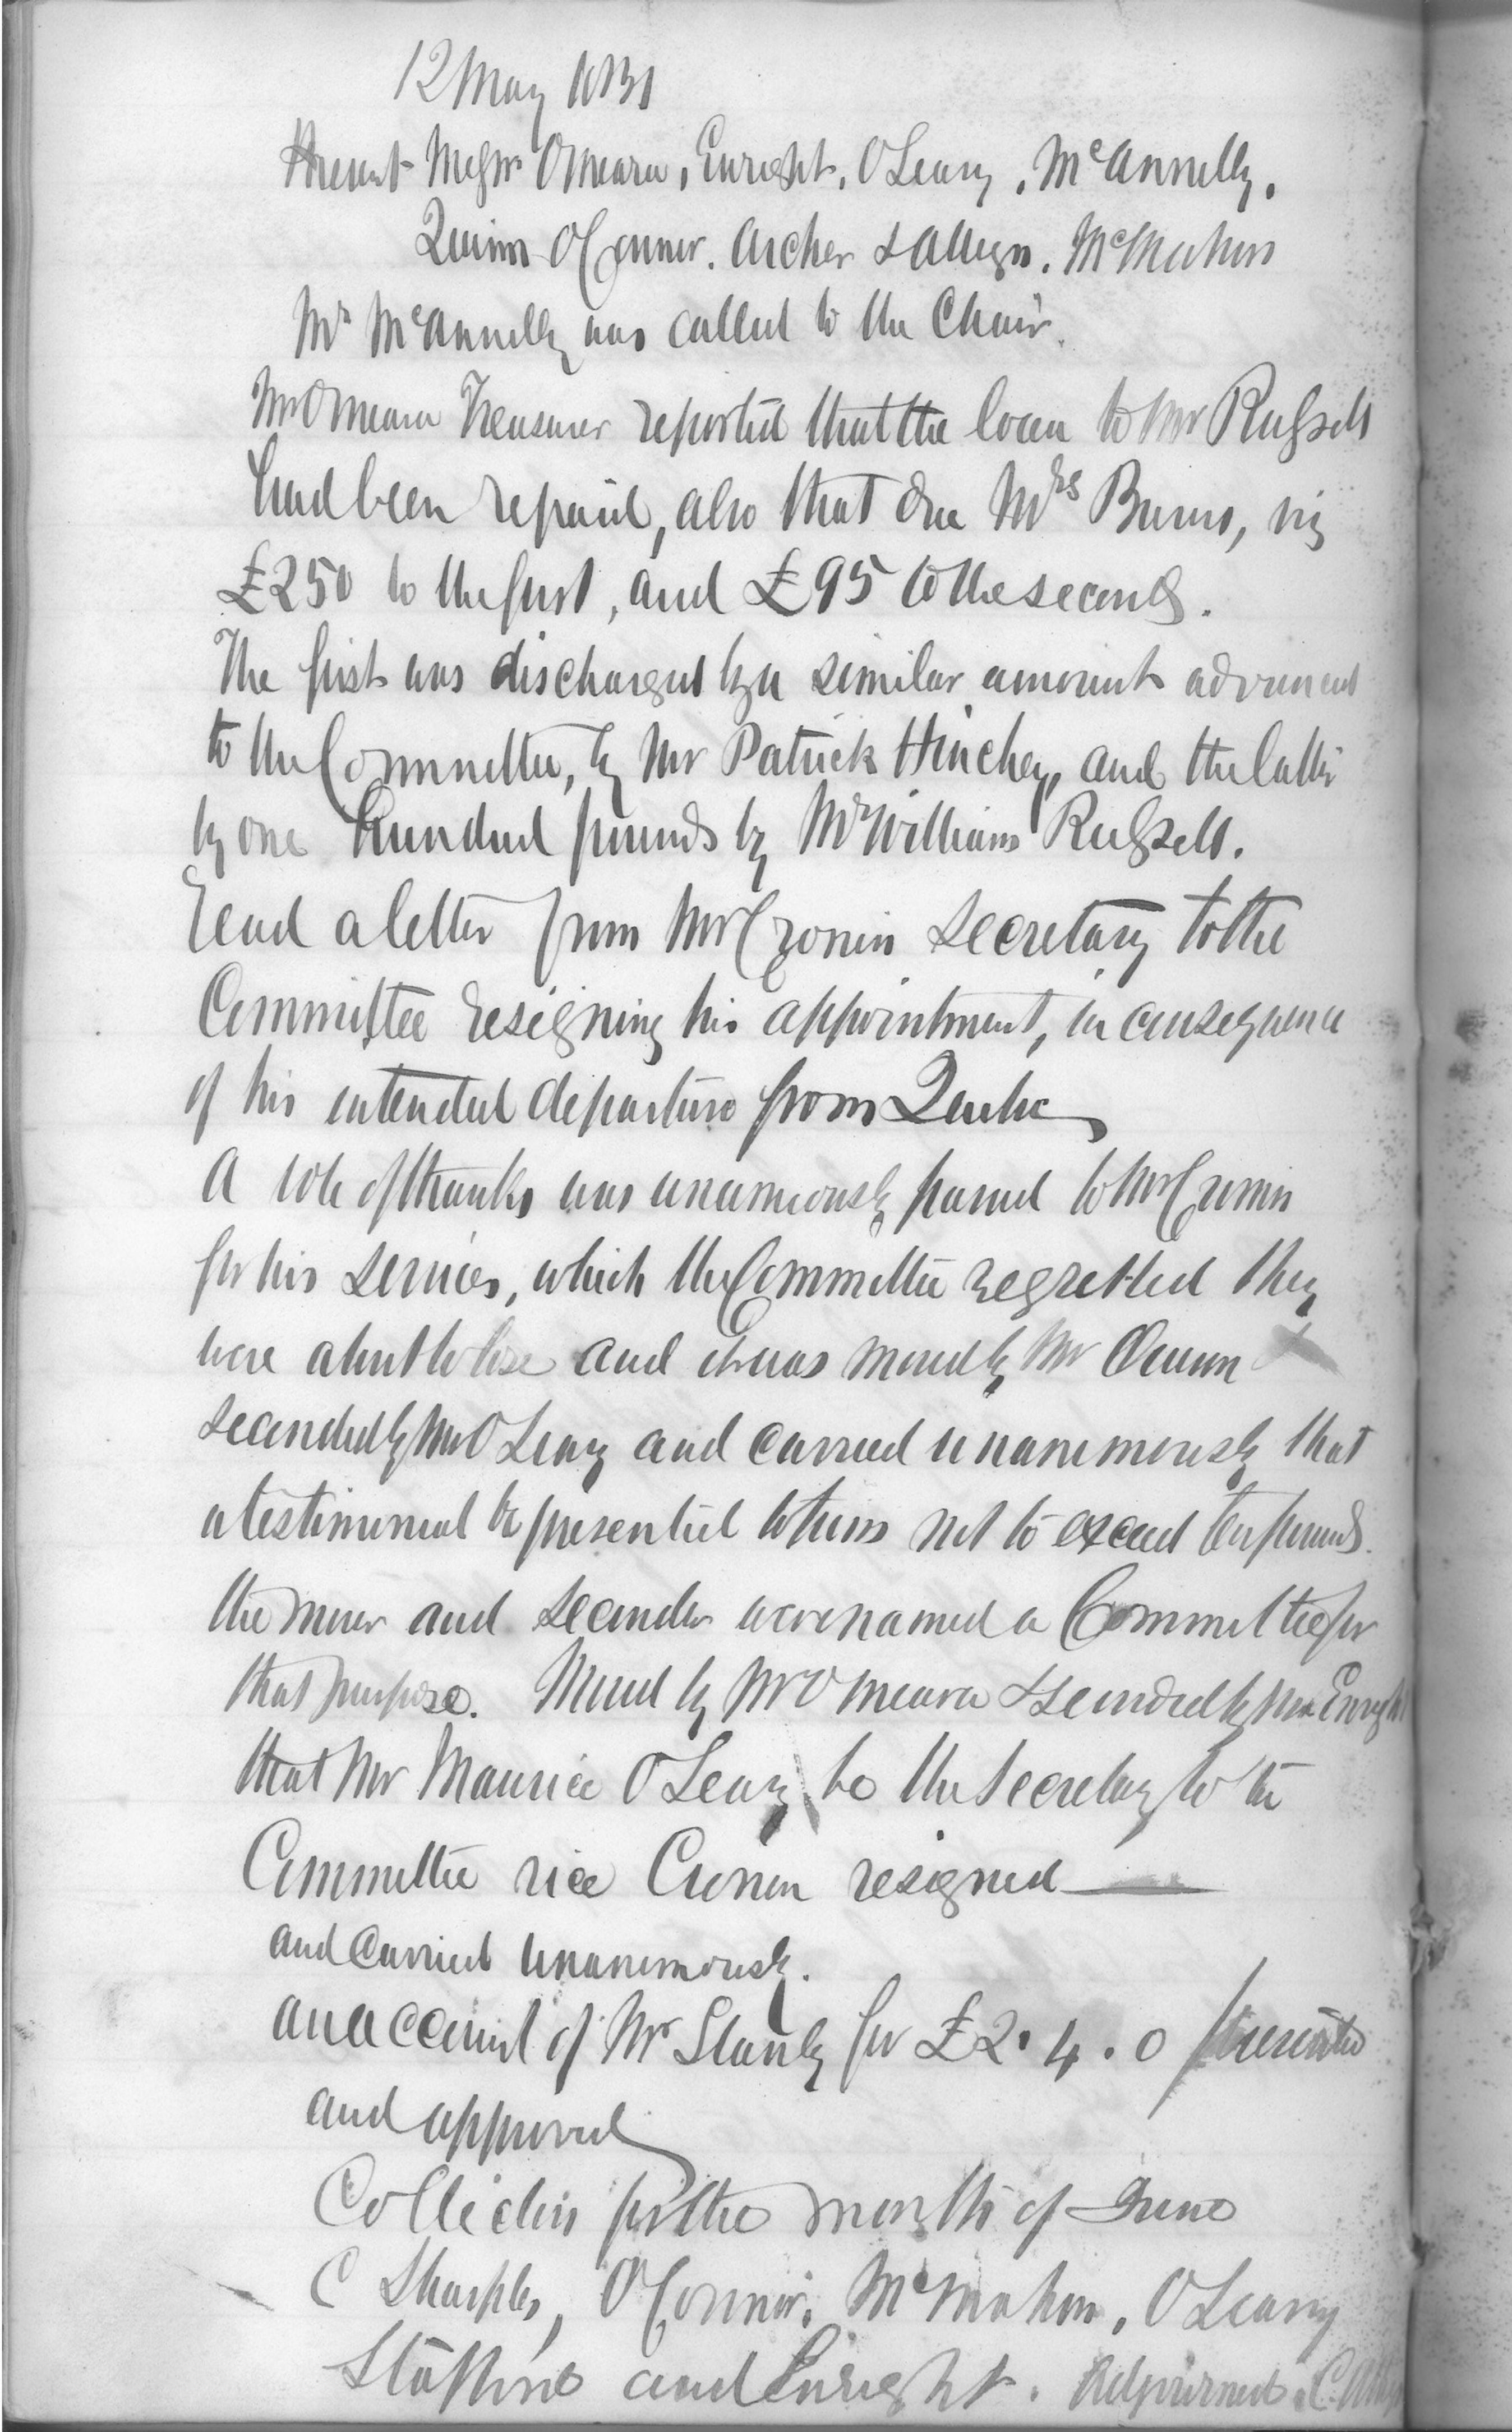 12 May 1851
Present Messrs O'Meara, Enright, O'Leary, McAnnelly,
Quinn O'Connor. Archer & Alleyn. McMahon
Mr McAnnelly was called to the Chair.
Mr O'Meara Treasurer reported that the loan to Mr Russell
had been repaid, also that due Mrs Burns, viz
£250 to the first, and £95 to the second.
The first was discharged by a similar amount advanced
to the Committee, by Mr Patrick Hinchey, and the latter
by one hundred pounds by Mr William Russell.
Read a letter from Mr Cronin Secretary to the
Committee resigning his appointment, in consequence
of his intended departure from Quebec
A vote of thanks was unanimously passed to Mr Cronin
for his services, which the Committee regretted they
were about to lose and it was moved by Mr
seconded by Mr O'Leary and carried unanimously that
a testimonial be presented to him not to exceed ten pounds.
the mover and seconder were named a Committee for
that purpose. Moved by Mr O'Meara & seconded by Mr Enright
that Mr Maurice O'Leary be the Secretary to the
Committee vice Cronin resigned
and carried unanimously.
an account of Mr Stanly for £2.4.0 presented
and approved
Collectors for the month of June
C Sharples, O'Connor, McMahon, O'Leary
and Enright. Adjourned.